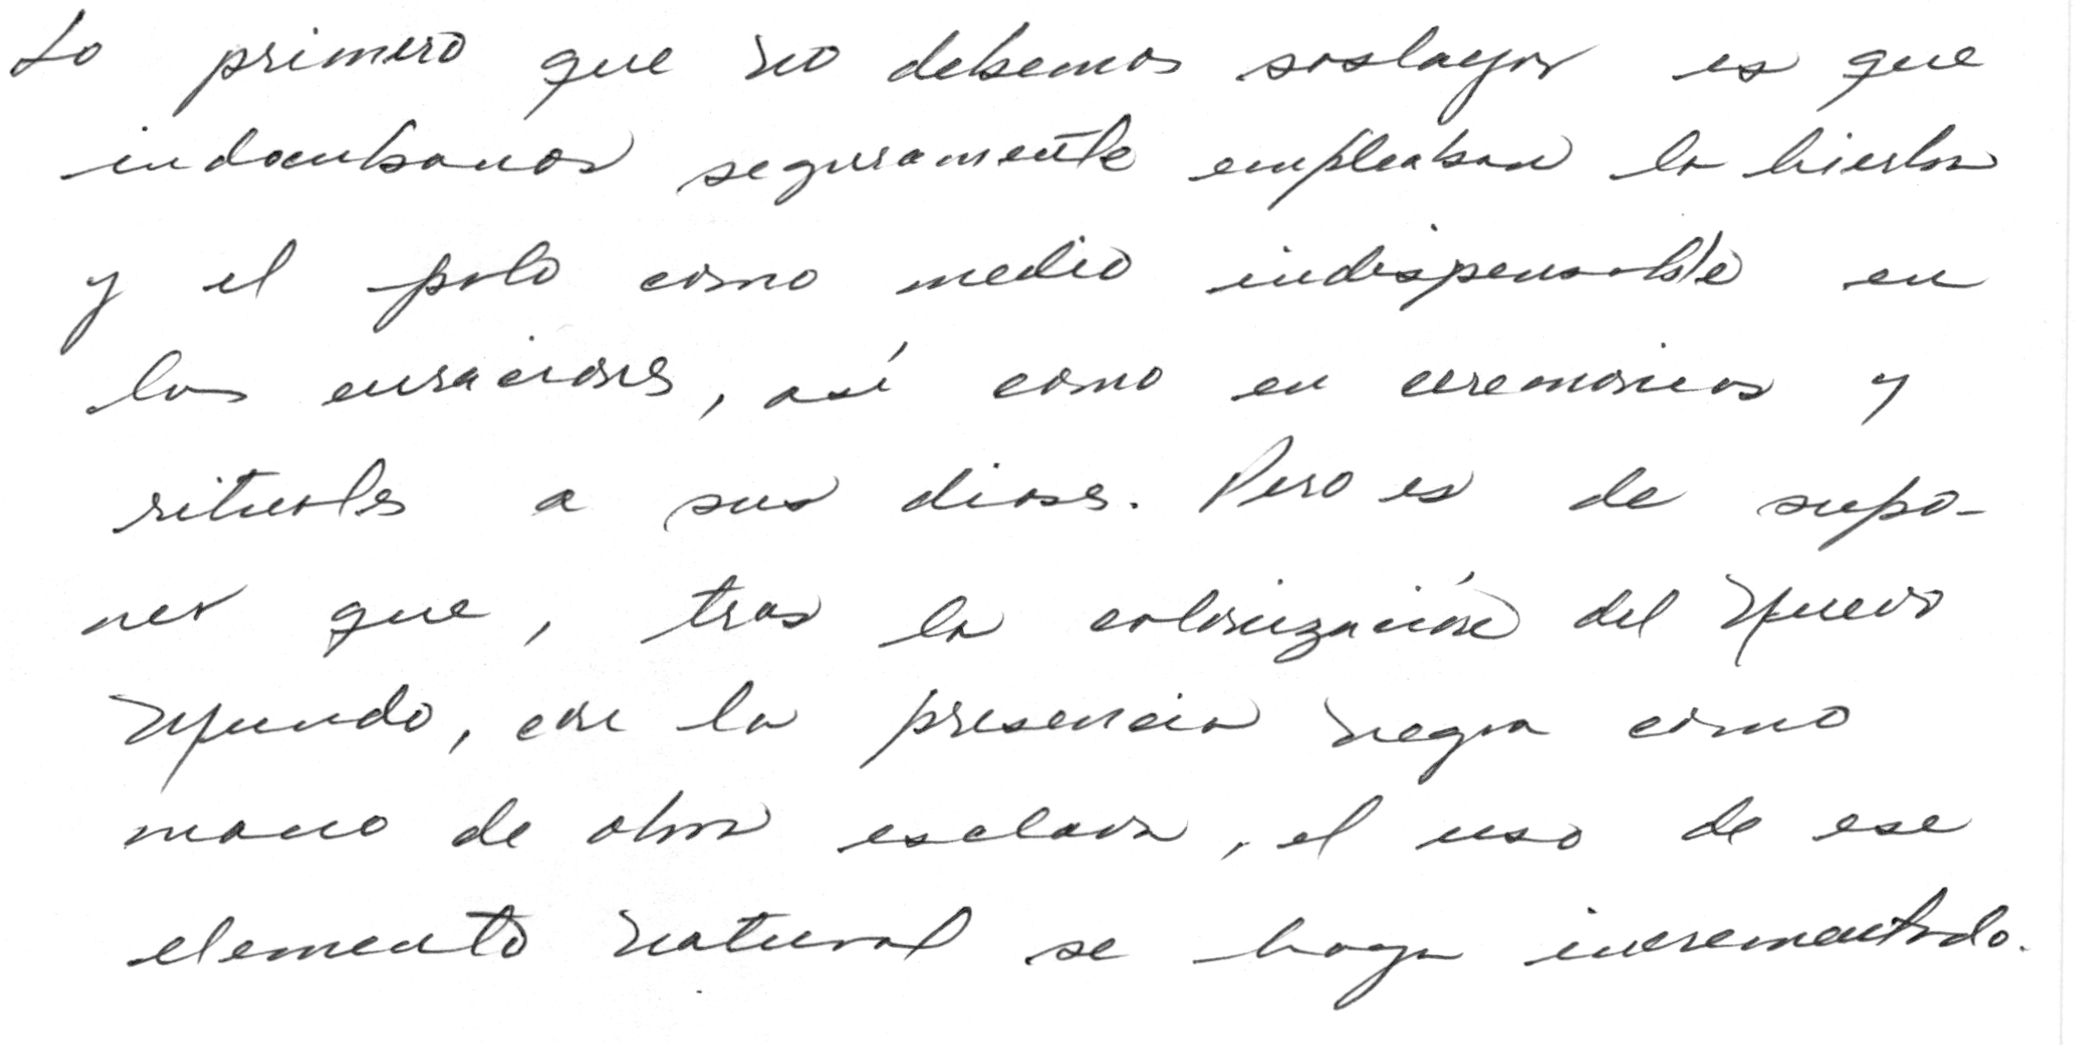 Lo primero que no debemos soslayar es que
indocubanos seguramente empleaban la hierba
y el palo como medio indispensable en
las curaciones, así como en ceremonias y
rituales a sus dioses. Pero es de supo-
ner que, tras la colonización del Nuevo
Mundo, con la presencia negra como
mano de obra esclava, el uso de ese
elemento natural se haya incrementado.